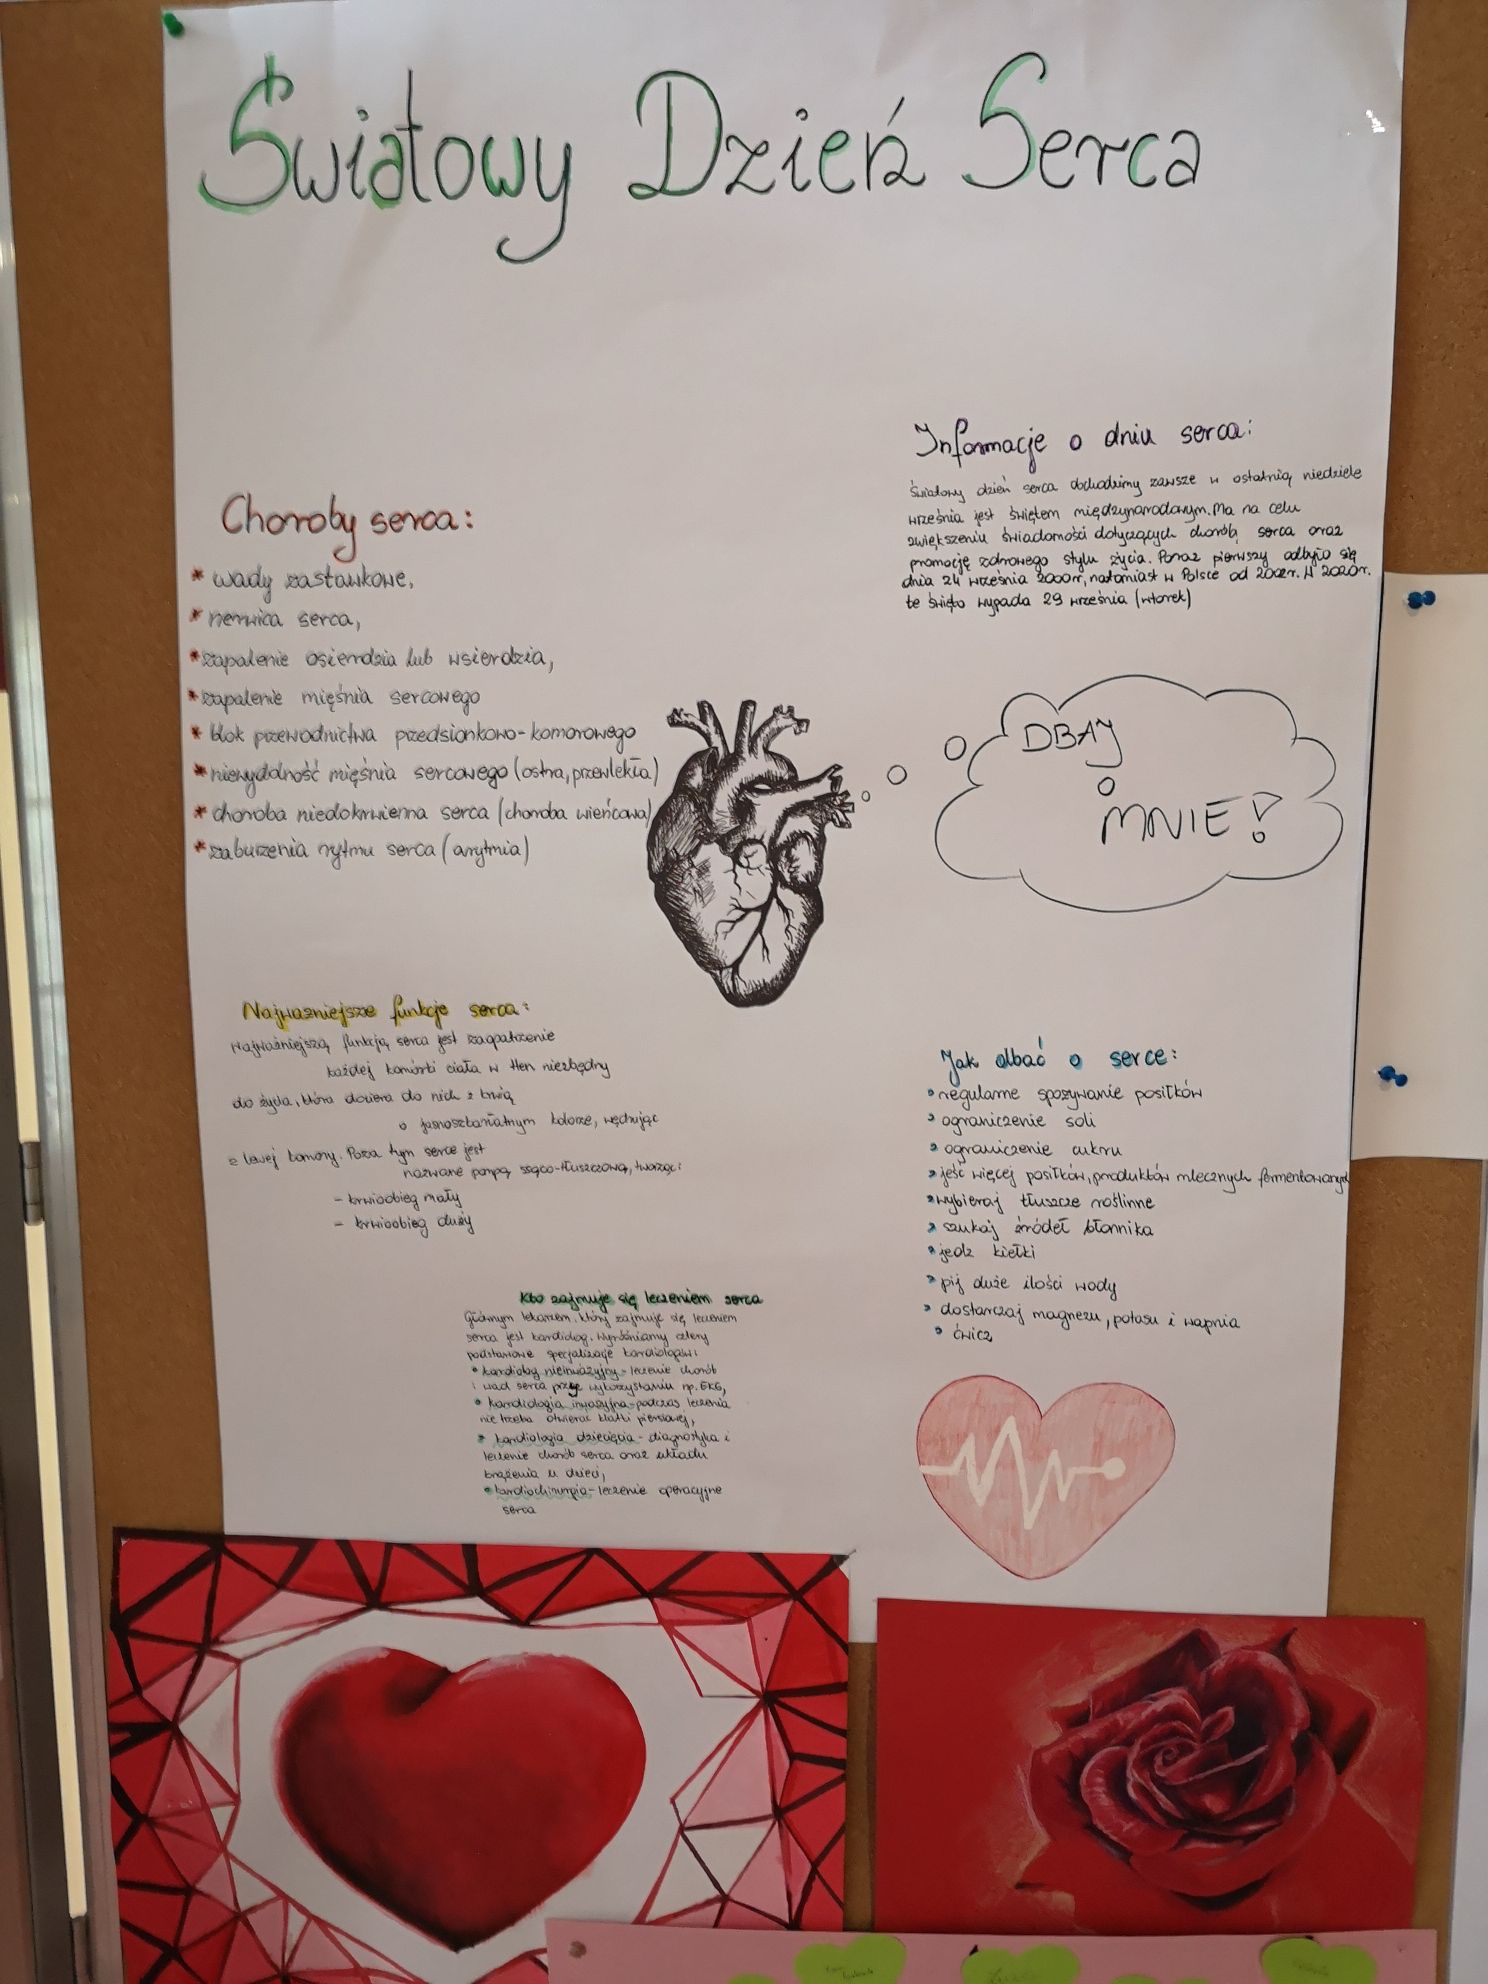 Światowy Dzień Serca
Informacje o dniu serca:
Światowy dzień serca obchodzimy zawsze w ostatnią niedziele
września jest świętem międzynarodowym. Ma na celu
zwiększeniu świadomości dotyczących chorób serca oraz
promocję zdrowego stylu życia. Poraz pierwszy odbyło się
dnia 24 września 2000r, natomiast w Polsce od 2002r. W 2020r.
te święto wypada 29 września (wtorek)
Choroby serca:
* wady zastawkowe,
* nerwica serca,
* zapalenie osierdzia lub wsierdzia,
* zapalenie mięśnia sercowego
* blok przewodnictwa przedsionkowo-komorowego
* niewydolność mięśnia sercowego (ostra, przewlekła)
* choroba niedokrwienna serca (choroba wieńcowa)
* zaburzenia rytmu serca (arytmia)
DBAJ
O
MNIE!
Najważniejsze funkcje serca:
Najważniejszą funkcją serca jest zaopatrzenie
każdej komórki ciała w tlen niezbędny
do życia, która dociera do nich z krwią
o jasnoszkarłatnym kolorze, wędrując
z lewej komory. Poza tym serce jest
nazwane pompą ssąco-tłuszczową, tworząc:
- krwioobieg mały
- krwioobieg duży
Jak dbać o serce:
regularne spożywanie posiłków
ograniczenie soli
ograniczenie cukru
jeść więcej posiłków, produktów mlecznych fermentowanych
wybieraj tłuszcze roślinne
szukaj źródeł błonnika
jedz kiełki
pij duże ilości wody
dostarczaj magnezu, potasu i wapnia
ćwicz
Kto zajmuje się leczeniem serca
Głównym lekarzem, który zajmuje się leczeniem
serca jest kardiolog. Wyróżniamy cztery
podstawowe specjalizacje kardiologów:
• kardiolog nieinwazyjny - leczenie chorób
i wad serca przy wykorzystaniu np. EKG,
• kardiologia inwazyjna - podczas leczenia
nie trzeba otwierać klatki piersiowej,
• kardiologia dziecięca - diagnostyka i
leczenie chorób serca oraz układu
krążenia u dzieci,
• kardiochirurgia - leczenie operacyjne
serca